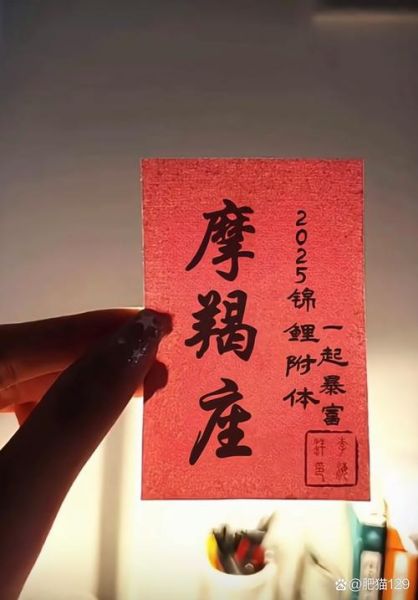 摩羯座
2025锦鲤附体
一起暴富
@肥猫129